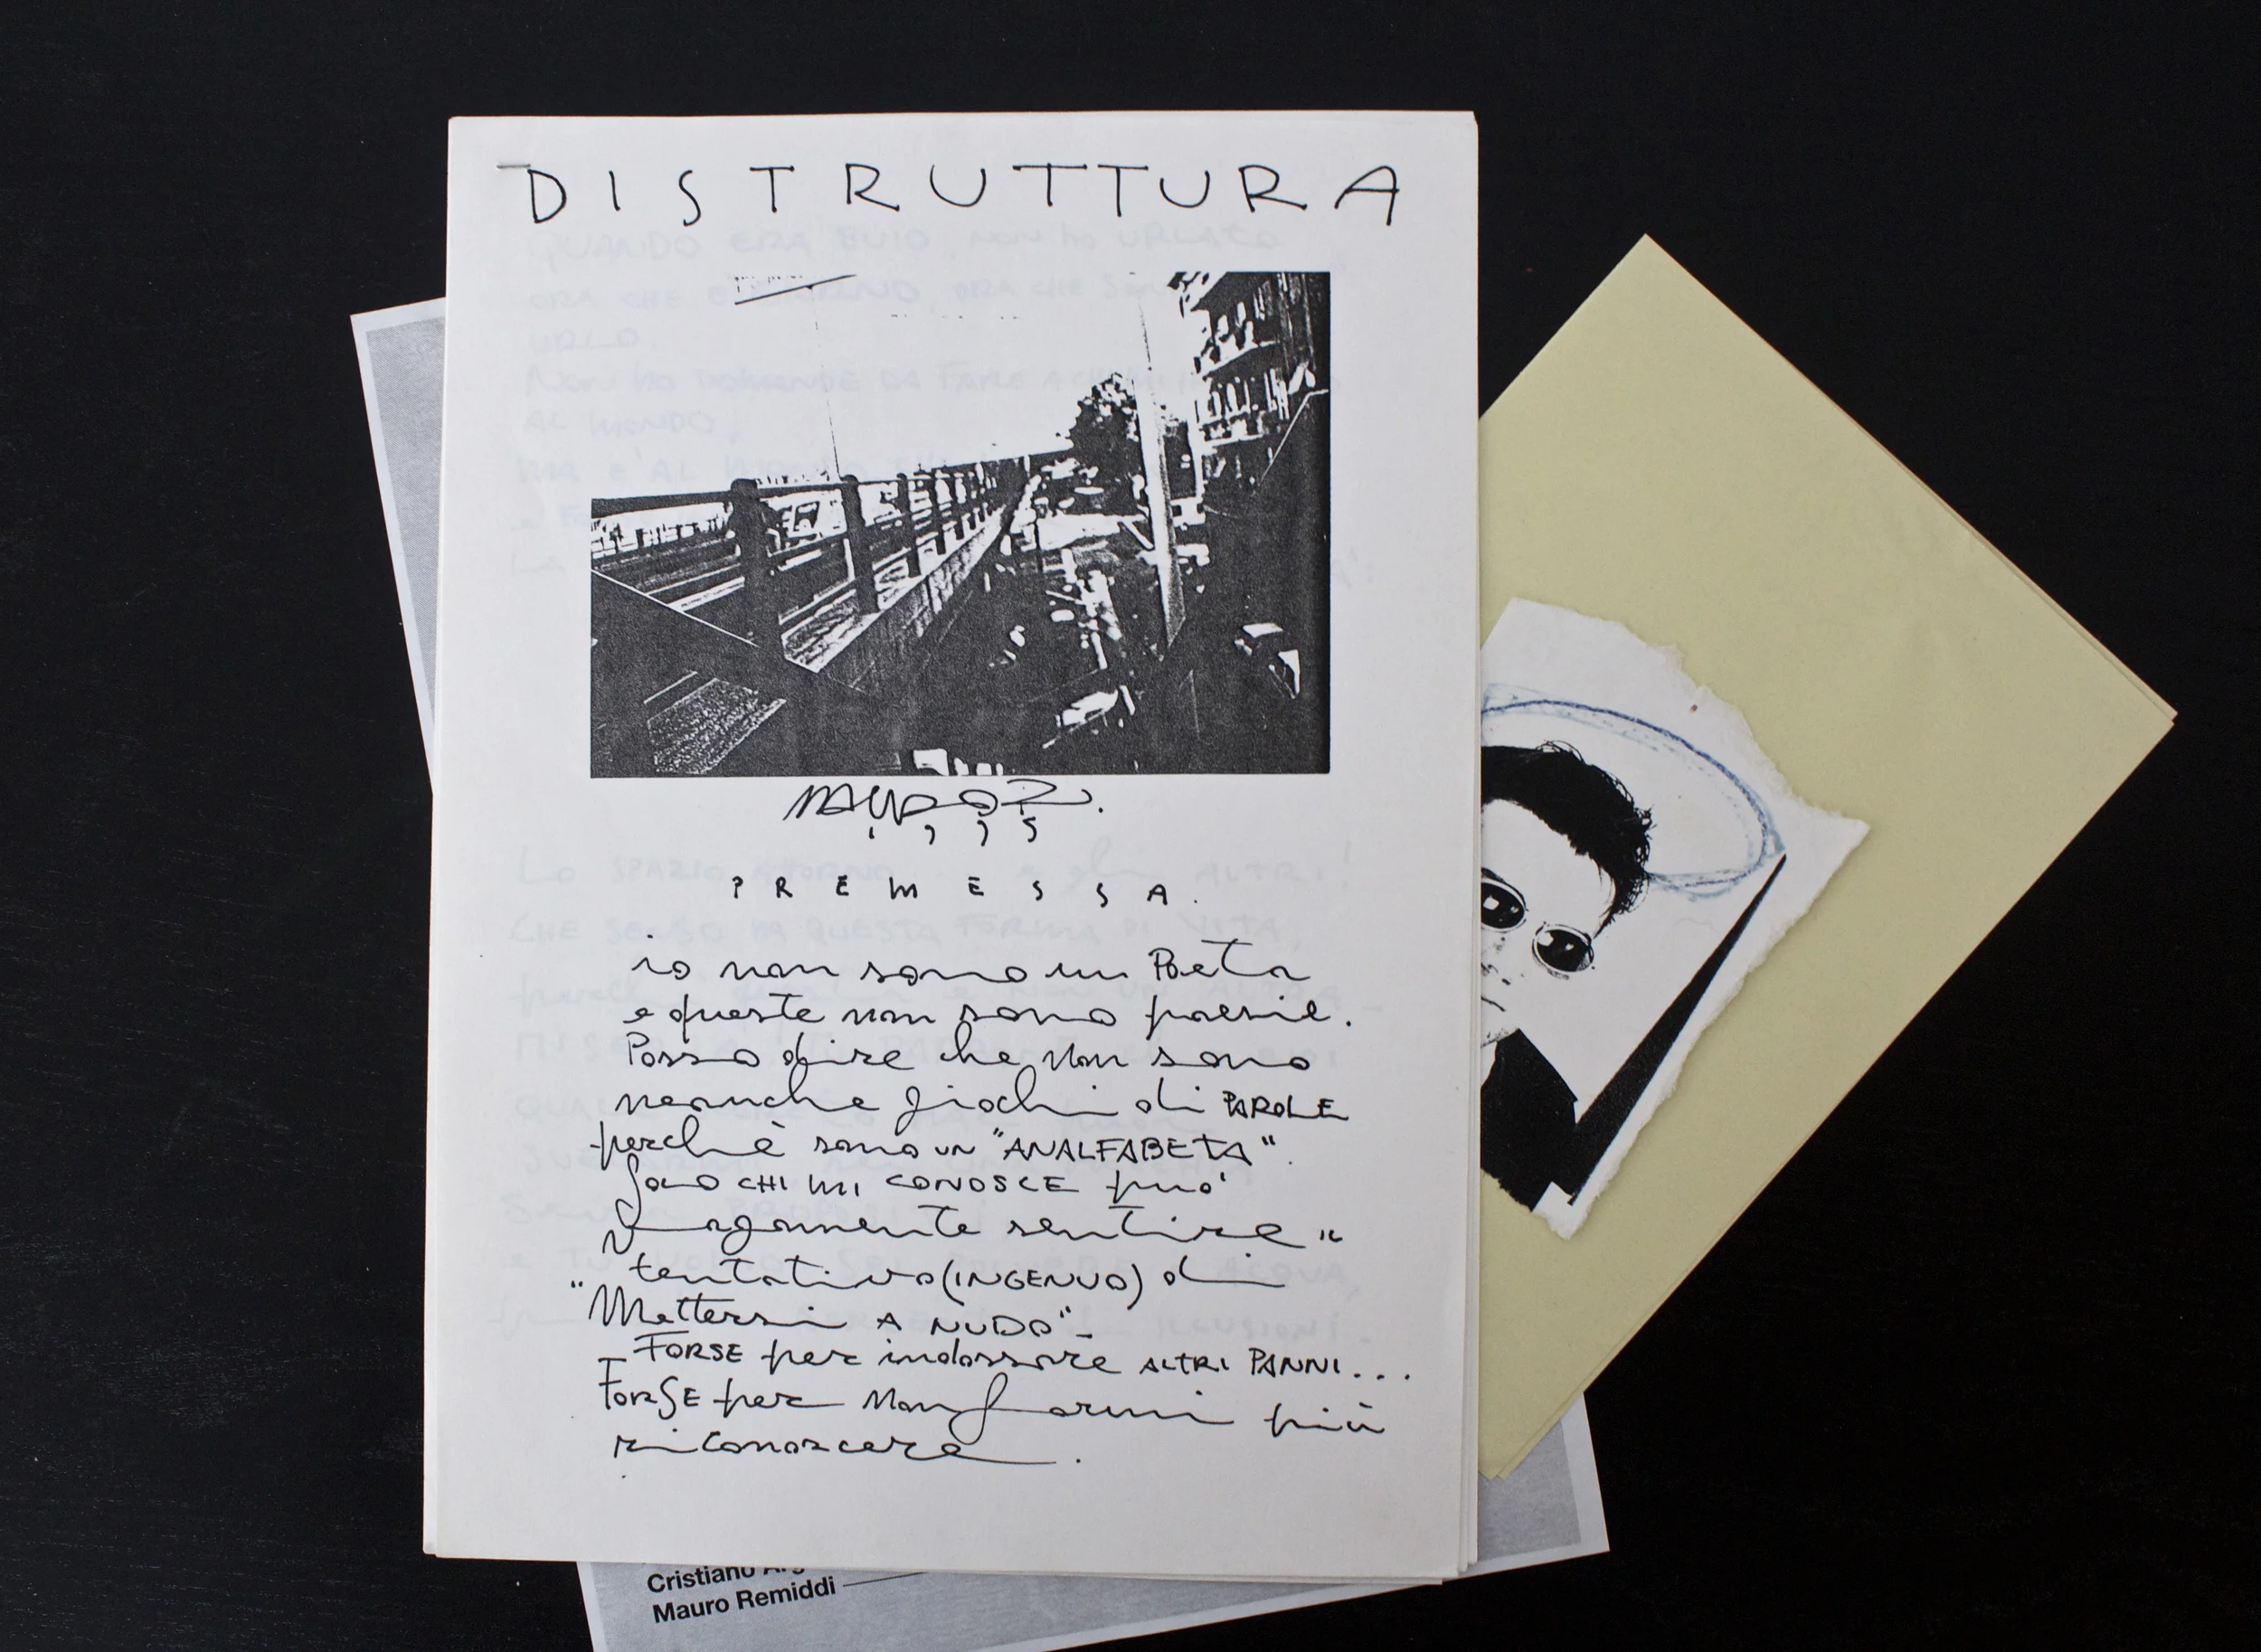 DISTRUTTURA
1995
PREMESSA.
io non sono un Poeta
e queste non sono poesie.
Posso dire che non sono
neanche giochi di PAROLE
perchè sono un "ANALFABETA".
Solo CHI MI CONOSCE può
Vagamente sentire il
tentativo (INGENUO) di
"Mettersi A NUDO"-
FORSE per indossare ALTRI PANNI...
FORSE per Non farmi più
riconoscere.
Cristiano
Mauro Remiddi